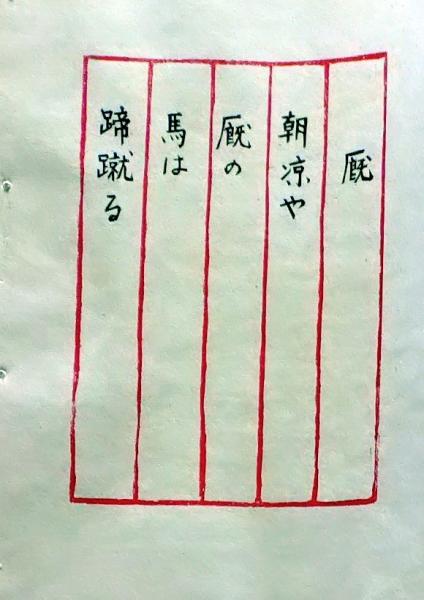 厩
朝涼や
厩の
馬は
蹄蹴る